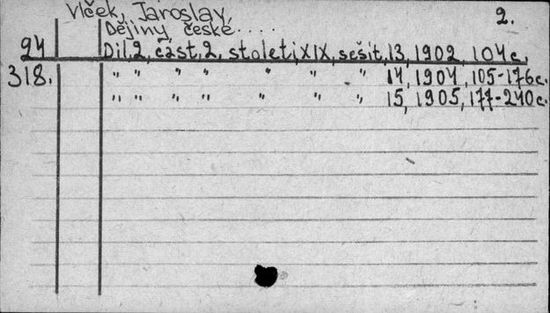 Vlček, Jaroslav,
2.
Dějiny české.....
94 Dil, 2, část, 2, století, XIX, sešit, 13, 1902, 104 c.
318. " " " " " " " 14, 1904, 105-176 c.
" " " " " " " 15, 1905, 177-240 c.